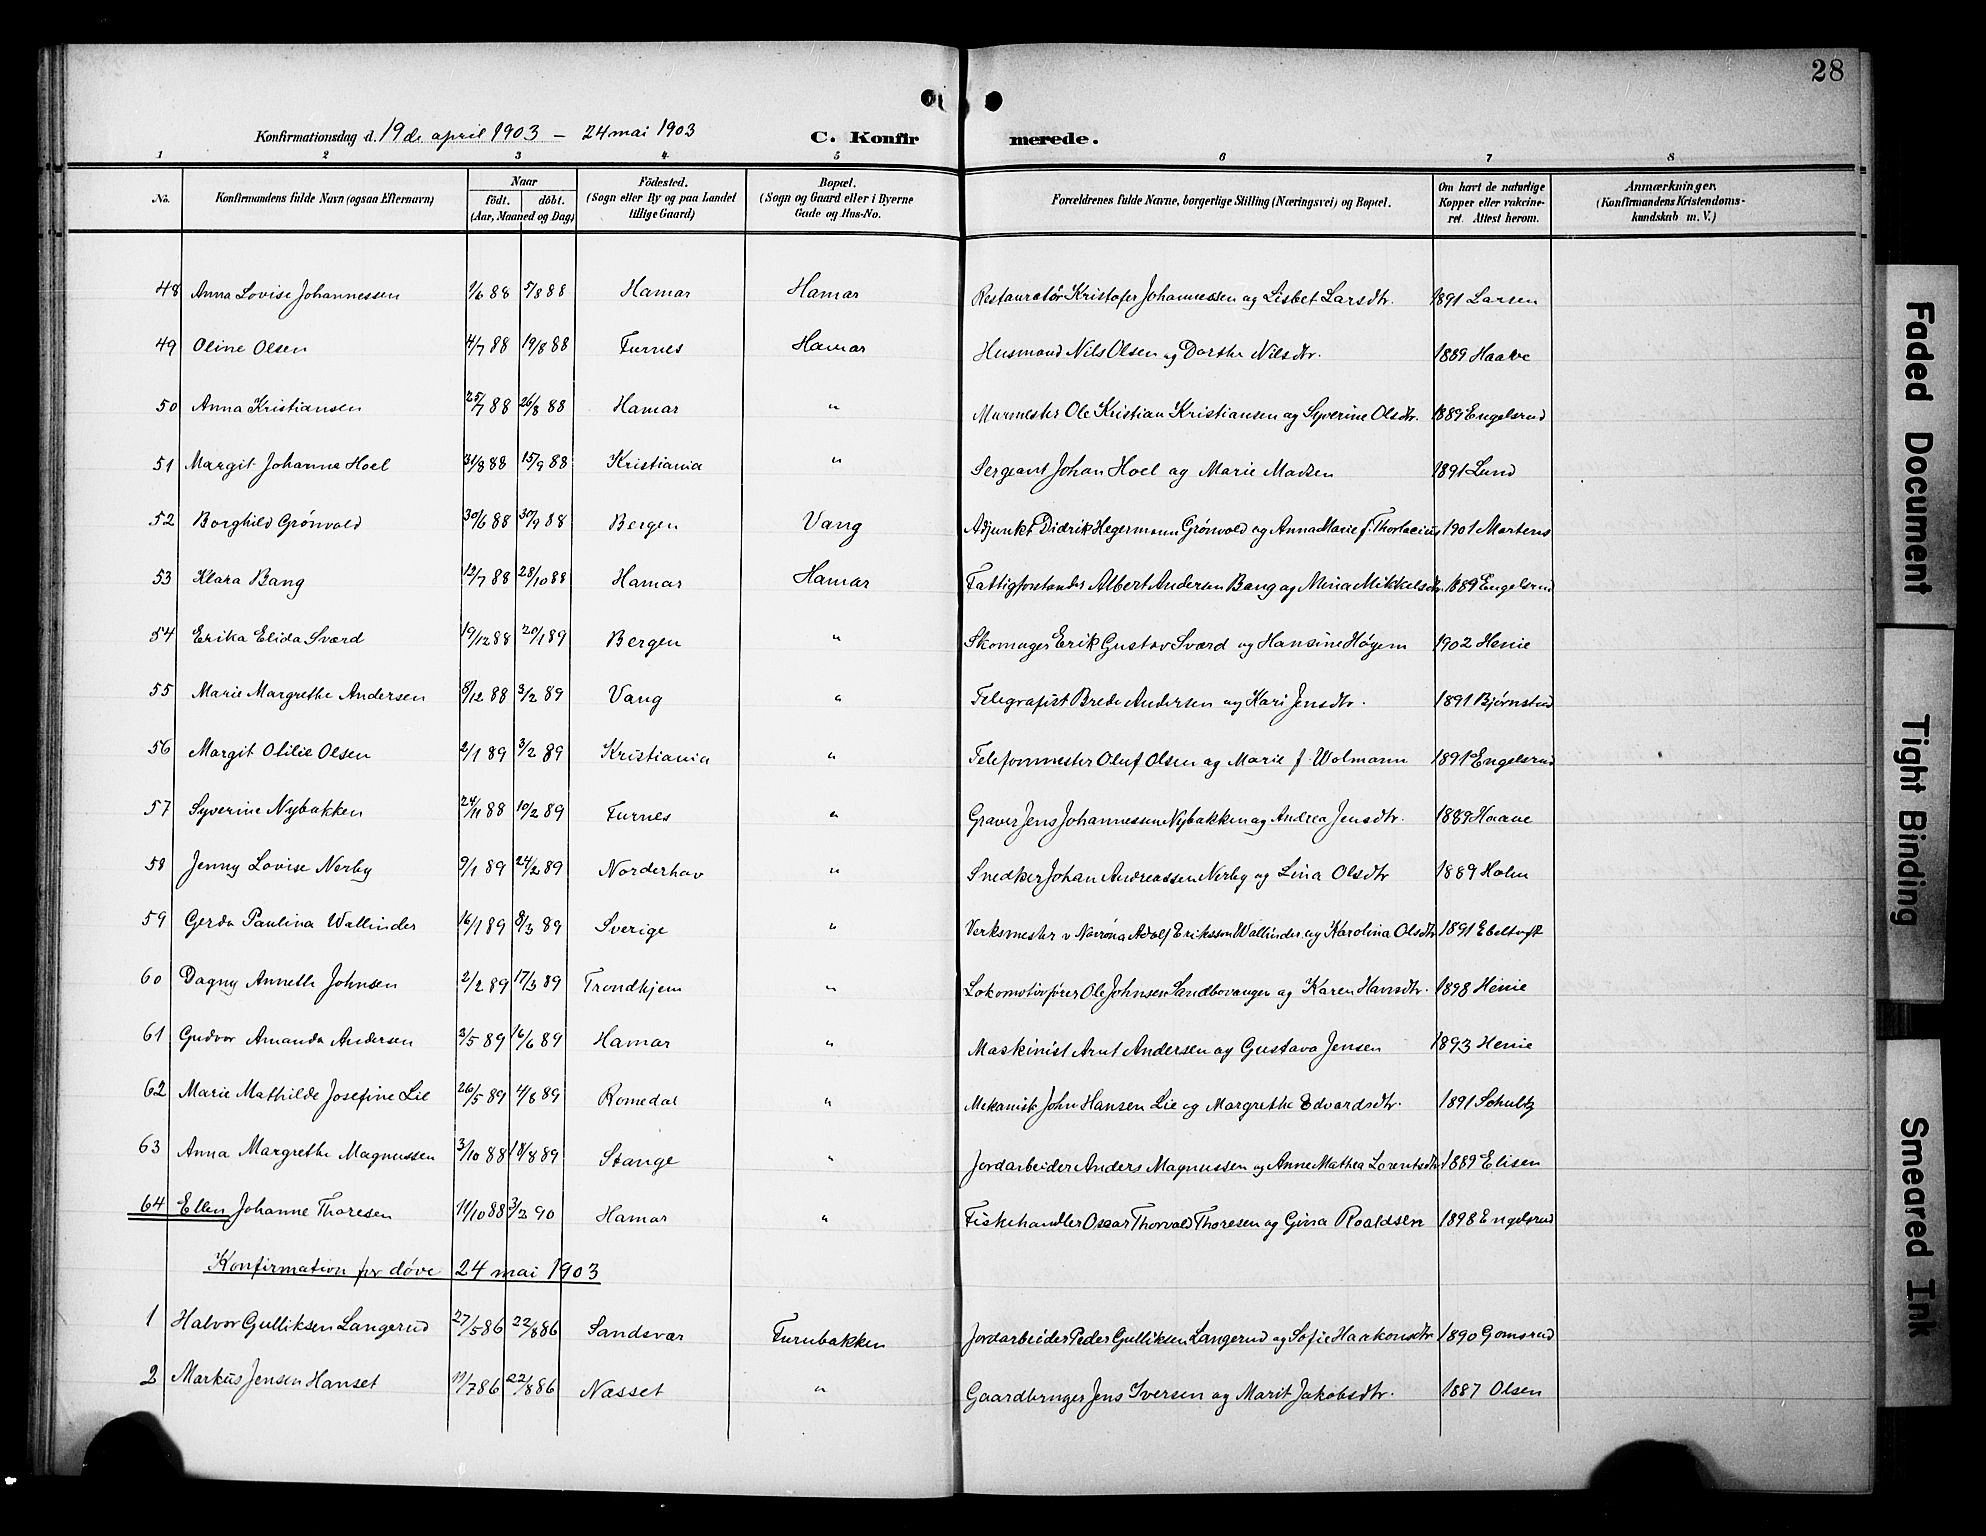 28
Konfirmationsdag d. 19de april 1903 – 24 mai 1903 C. Konfirmerede.
1 2 3 4 5 6 7 8
No. Konfirmandens fulde Navn (ogsaa Efternavn) Naar født. døbt. (Aar, Maaned og Dag) Fødested. (Sogn eller By og paa Landet tillige Gaard) Bopæl. (Sogn og Gaard eller i Byerne Gade og Hus-No. Forældrenes fulde Navne, borgerlige Stilling (Næringsvei) og Bopæl. Om havt de naturlige Kopper eller vakcineret. Attest herom. Anmærkninger. (Konfirmandens Kristendomskundskab m. V.)
48 Anna Lovise Johannessen 1/6 88 5/8 88 Hamar Hamar Restauratør Kristofer Johannessen og Lisbet Larsdtr. 1891 Larsen
49 Oline Olsen 4/7 88 19/8 88 Furnes Hamar Husmand Nils Olsen og Dorthe Nilsdtr. 1889 Haave
50 Anna Kristiansen 25/7 88 26/8 88 Hamar " Murmester Ole Kristian Kristiansen og Syverine Olsdtr. 1889 Engelsrud
51 Margit Johanne Hoel 31/8 88 15/9 88 Kristiania " Sergeant Johan Hoel og Marie Madsen 1891 Lund
52 Borghild Grønvold 30/6 88 30/9 88 Bergen Vang Adjunkt Didrik Hegermann Grønvold og Anna Marie f. Thorlacius 1901 Martens
53 Klara Bang 12/7 88 28/10 88 Hamar Hamar Fattigforstander Albert Andersen Bang og Mina Mikkelsdtr. 1889 Engelsrud
54 Erika Elida Sværd 19/12 88 20/1 89 Bergen " Skomager Erik Gustav Sværd og Hansine Høyem 1902 Henie
55 Marie Margrethe Andersen 8/12 88 3/2 89 Vang " Telegrafist Brede Andersen og Kari Jensdtr. 1891 Bjørnstad
56 Margit Otilie Olsen 2/1 89 3/2 89 Kristiania " Telefonmester Oluf Olsen og Marie f. Wolmann 1891 Engelsrud
57 Syverine Nybakken 24/11 88 10/2 89 Furnes " Graver Jens Johannessen Nybakken og Andrea Jensdtr. 1889 Haave
58 Jenny Lovise Nerby 9/1 89 24/2 89 Norderhov " Snedker Johan Andreassen Nerby og Lina Olsdtr 1889 Holm
59 Gerda Paulina Wallinder 16/1 89 8/3 89 Sverige " Verksmester v Norrøna Adolf Eriksson Wallinder og Karolina Olsdtr 1891 Ebeltoft
60 Dagny Annette Johnsen 2/2 89 17/3 89 Trondhjem " Lokomotivfører Ole Johnsen Sandbovangen og Karen Hansdtr. 1898 Henie
61 Gudvor Amanda Andersen 3/5 89 16/6 89 Hamar " Maskinist Arnt Andersen og Gustava Jensen 1893 Henie
62 Marie Mathilde Josefine Lie 26/5 89 4/8 89 Romedal " Mekanisk John Hansen Lie og Margrethe Edvardsdtr. 1891 Schultz
63 Anna Margrethe Magnussen 3/10 88 18/8 89 Stange " Jordarbeider Anders Magnussen og Anne Mathea Lorentsdtr 1889 Elisen
64 Ellen Johanne Thoresen 11/10 88 3/2 90 Hamar " Fiskehandler Oscar Thorvald Thoresen og Gina Roaldsen 1898 Engelsrud
Konfirmation for døve 24 mai 1903
1 Halvor Gulliksen Langerud 27/5 86 22/8 86 Sandsvær Furubakken Jordarbeider Peder Gulliksen Langerud og Sofie Haakonsdtr 1890 Gomsrud
2 Markus Jensen Hanset 11/7 86 22/8 86 Næsset " Gaardbruger Jens Iversen og Marit Jakobsdtr. 1887 Olsen
Faded Document
Tight Binding
Smeared Ink